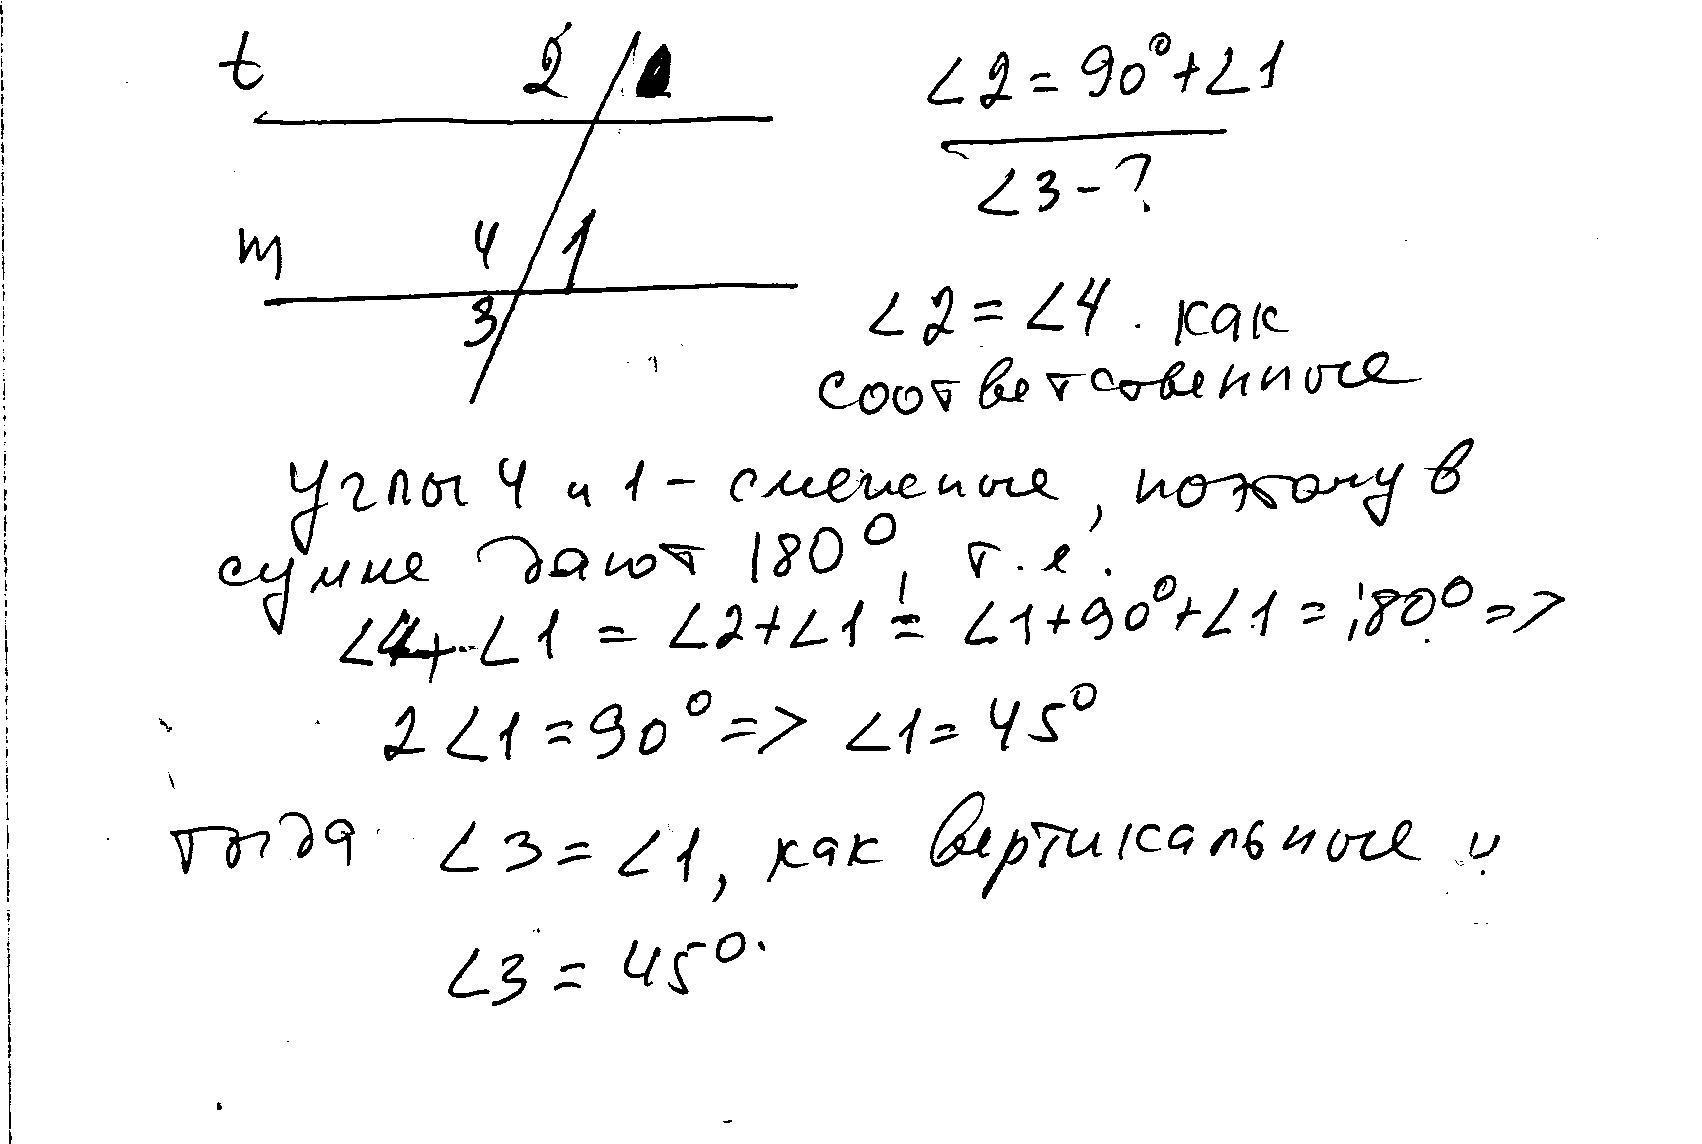 t
2
∠2 = 90° + ∠1
∠3 - ?
m
4
1
3
∠2 = ∠4 . как
соответственные
Углы 4 и 1 - смежные, поэтому в
сумме дают 180°, т.е.
∠4 + ∠1 = ∠2 + ∠1 = ∠1 + 90° + ∠1 = 180° =>
2∠1 = 90° => ∠1 = 45°
тогда ∠3 = ∠1, как вертикальные и
∠3 = 45°.